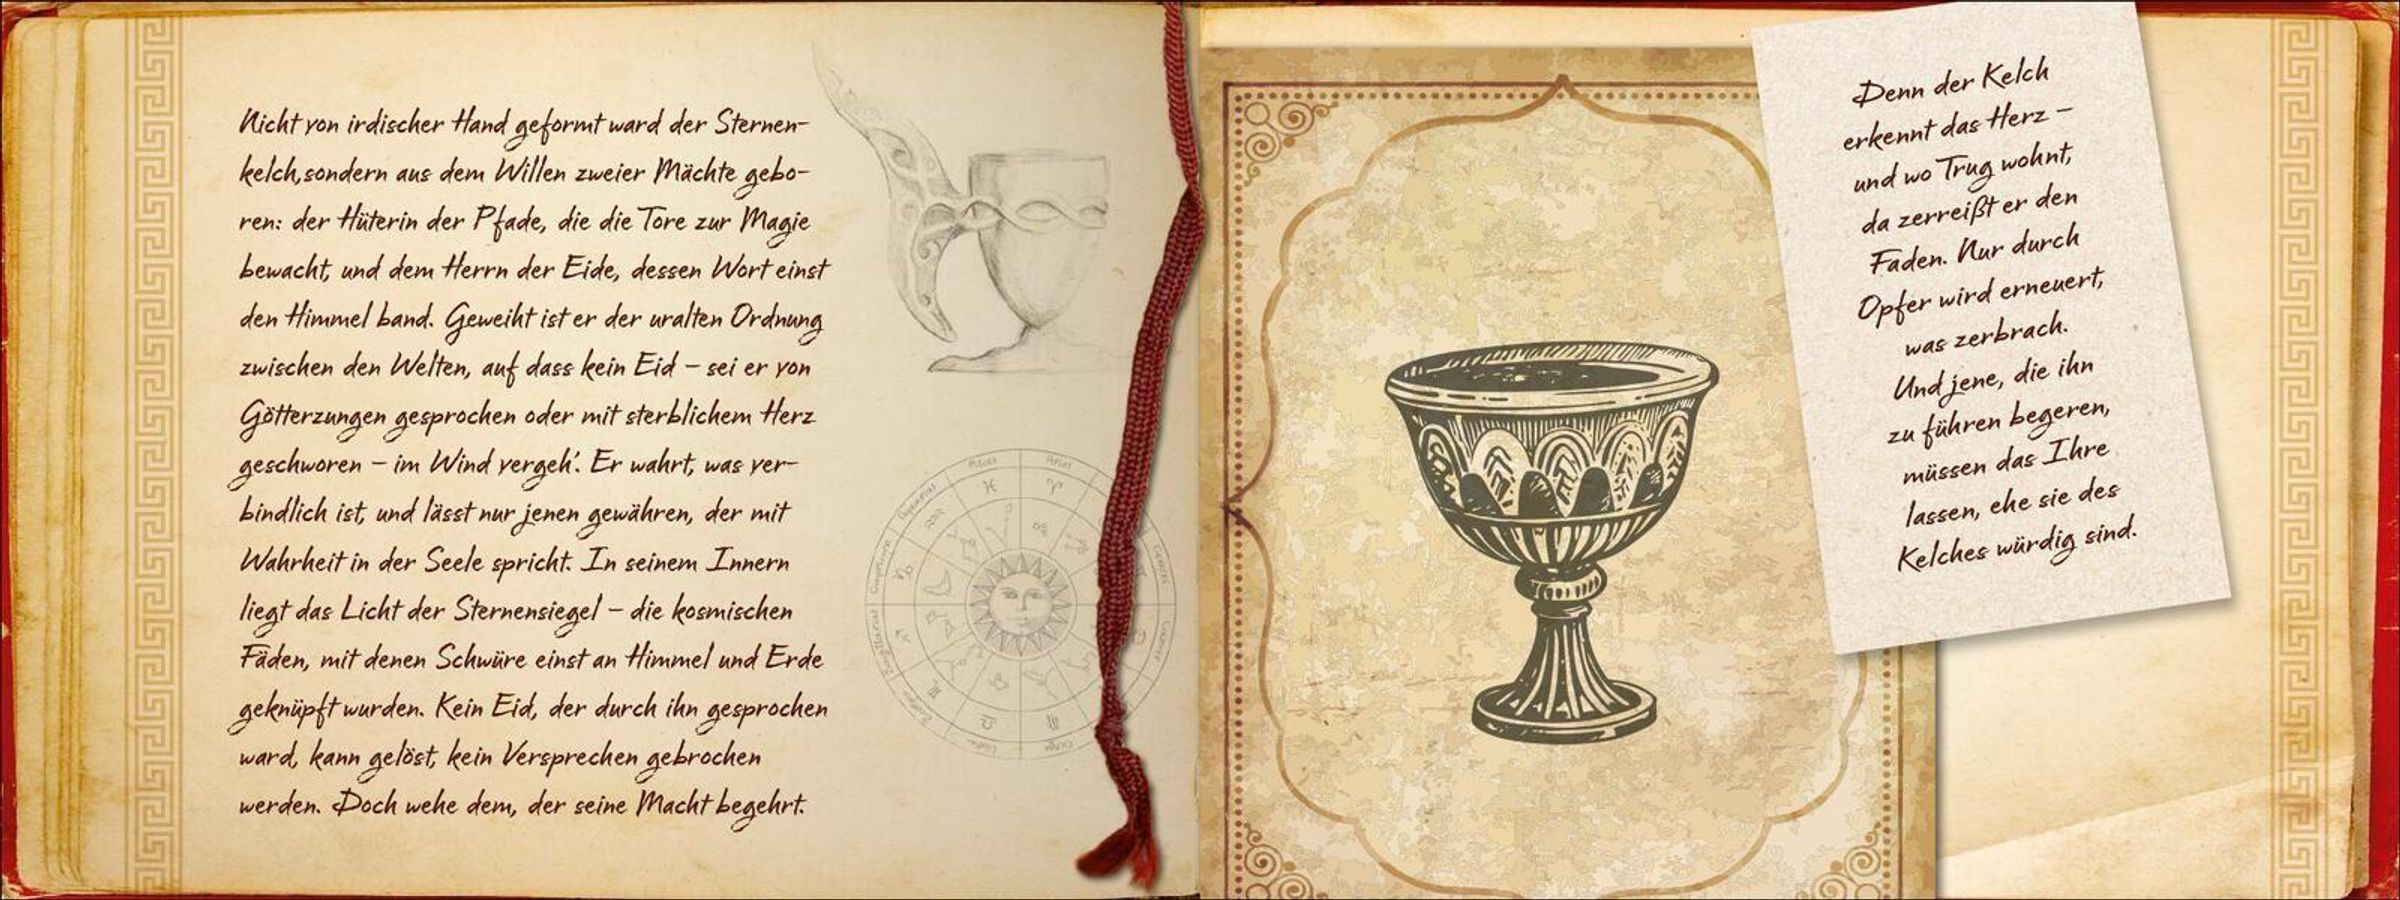 Nicht von irdischer Hand geformt ward der Sternen-
kelch,sondern aus dem Willen zweier Mächte gebo-
ren: der Hüterin der Pfade, die die Tore zur Magie
bewacht, und dem Herrn der Eide, dessen Wort einst
den Himmel band. Geweiht ist er der uralten Ordnung
zwischen den Welten, auf dass kein Eid – sei er von
Götterzungen gesprochen oder mit sterblichem Herz
geschworen – im Wind vergeh'. Er wahrt, was ver-
bindlich ist, und lässt nur jenen gewähren, der mit
Wahrheit in der Seele spricht. In seinem Innern
liegt das Licht der Sternensiegel – die kosmischen
Fäden, mit denen Schwüre einst an Himmel und Erde
geknüpft wurden. Kein Eid, der durch ihn gesprochen
ward, kann gelöst, kein Versprechen gebrochen
werden. Doch wehe dem, der seine Macht begehrt.
Pisces
Aries
Aquarius
Capricorn
Sagittarius
Libra
Virgo
Cancer
Denn der Kelch
erkennt das Herz –
und wo Trug wohnt,
da zerreißt er den
Faden. Nur durch
Opfer wird erneuert,
was zerbrach.
Und jene, die ihn
zu führen begeren,
müssen das Ihre
lassen, ehe sie des
Kelches würdig sind.